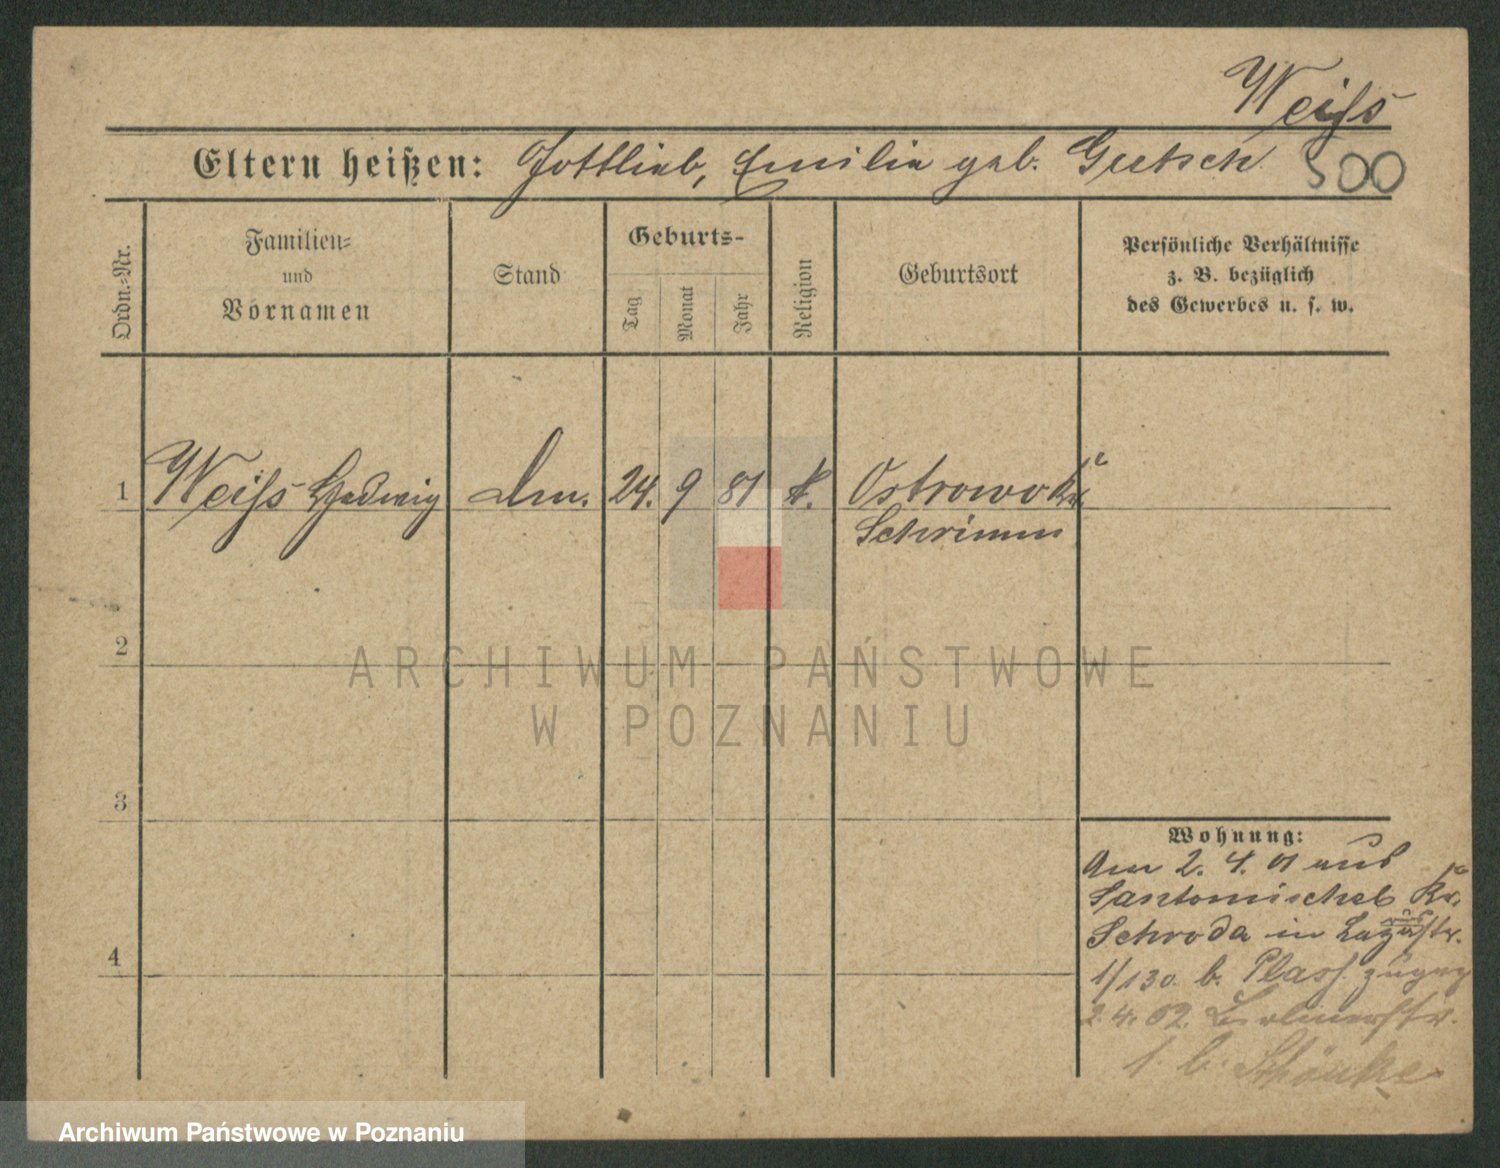 Weiſs
Eltern heißen: Gottlieb, Emilie geb. Gutsch
500
Ordn.-Nr.
Familien-
und
Vornamen
Stand
Geburts-
Tag
Monat
Jahr
Religion
Geburtsort
Persönliche Verhältnisse
z. B. bezüglich
des Gewerbes u. s. w.
1 Weiſs Hedwig 24. 9 81 k. Ostrowo Kr.
Schrimm
2
3
4
Wohnung:
Am 2. 4. 01 aus
Santomischel Kr.
Schroda in
1/130. b.
2. 4. 02. Berlinerstr.
1. b.
ARCHIWUM PAŃSTWOWE
W POZNANIU
Archiwum Państwowe w Poznaniu